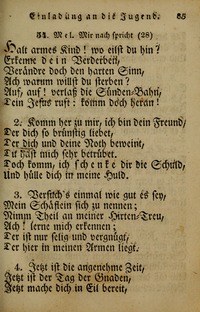 Einladung an die Jugend. 65
51. Mel. Mir nach spricht (28)
Halt armes Kind! wo eilst du hin?
Erkenne dein Verderben,
Verändre doch den harten Sinn,
Ach warum willst du sterben?
Auf, auf! verlaß die Sünden-Bahn,
Dein Jesus ruft: komm doch heran!
2. Komm her zu mir, ich bin dein Freund,
Der dich so brünstig liebet,
Der dich und deine Noth beweint,
Du hast mich sehr betrübet;
Doch komm, ich schenke dir die Schuld,
Und hülle dich in meine Huld.
3. Versuch's einmal wie gut es sey,
Mein Schäflein sich zu nennen;
Nimm Theil an meiner Hirten-Treu,
Ach! lerne mich erkennen;
Der ist nur selig und vergnügt,
Der hier in meinen Armen liegt.
4. Jetzt ist die angenehme Zeit,
Jetzt ist der Tag der Gnaden,
Jetzt mache dich in Eil bereit,